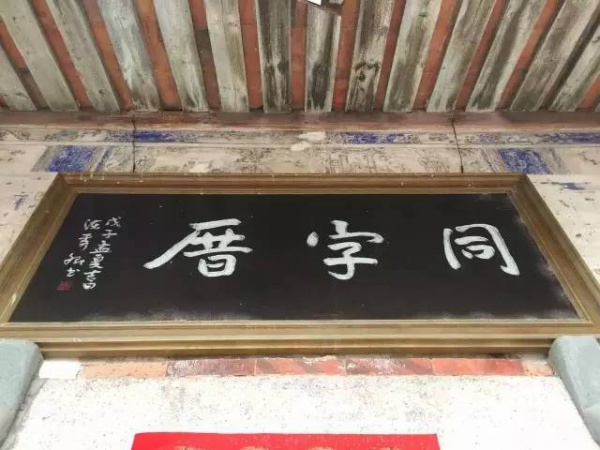 同字厝
戊子孟夏吉日